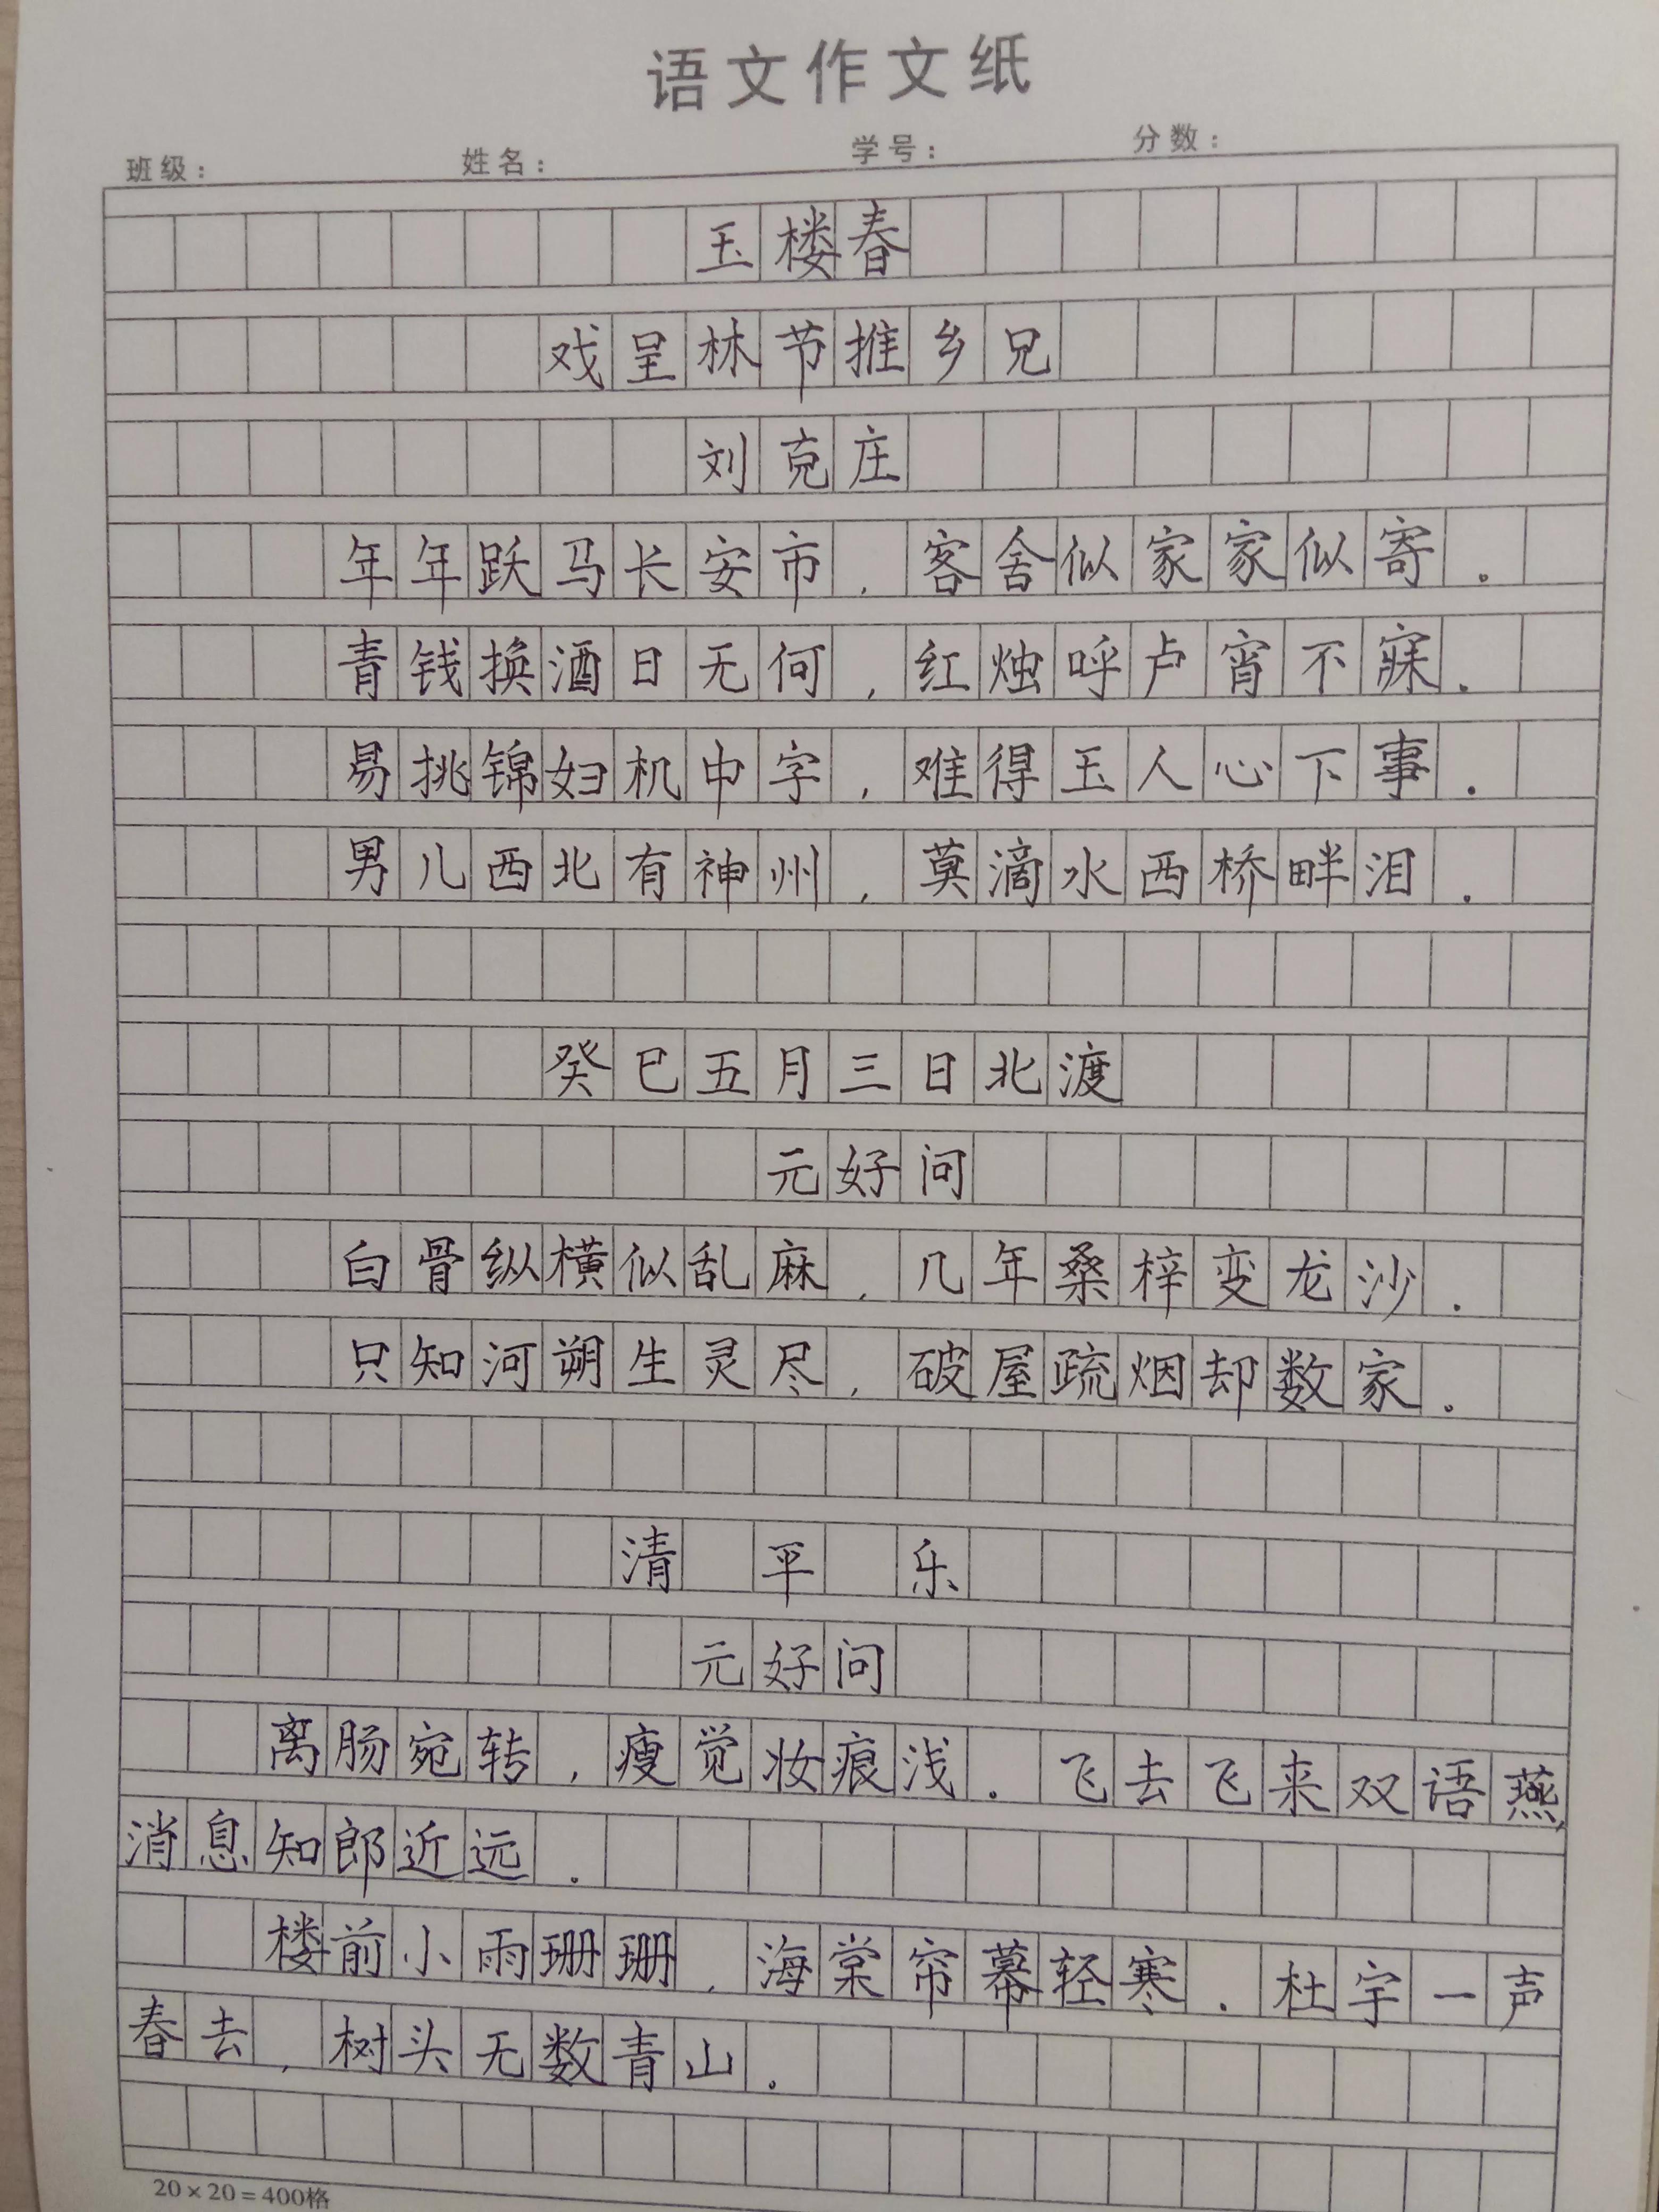 语文作文纸
班级： 姓名： 学号： 分数：
玉楼春
戏呈林节推乡兄
刘克庄
年年跃马长安市，客舍似家家似寄。
青钱换酒日无何，红烛呼卢宵不寐。
易挑锦妇机中字，难得玉人心下事。
男儿西北有神州，莫滴水西桥畔泪。
癸巳五月三日北渡
元好问
白骨纵横似乱麻，几年桑梓变龙沙。
只知河朔生灵尽，破屋疏烟却数家。
清平乐
元好问
离肠宛转，瘦觉妆痕浅。飞去飞来双语燕，
消息知郎近远。
楼前小雨珊珊，海棠帘幕轻寒。杜宇一声
春去，树头无数青山。
20×20=400格